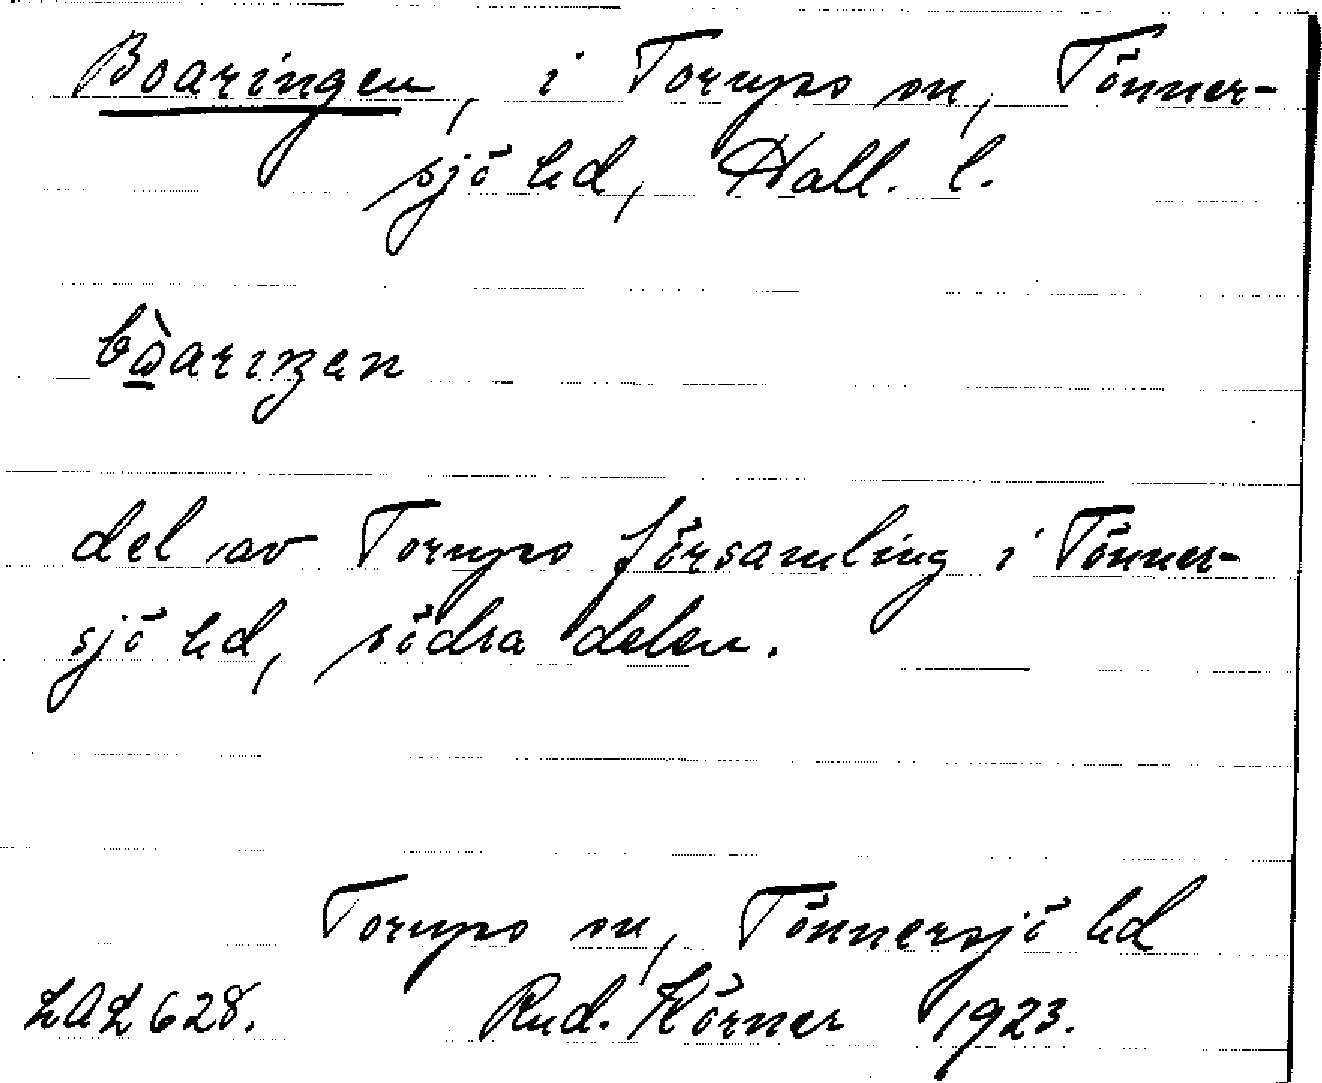 Boaringen, i Torups sn, Tönner-
sjö hd, Hall. l.
bòariŋen
del av Torups församling i Tönner-
sjö hd, södra delen.
Torups sn, Tönnersjö hd
LAL 628. Rud. Körner 1923.